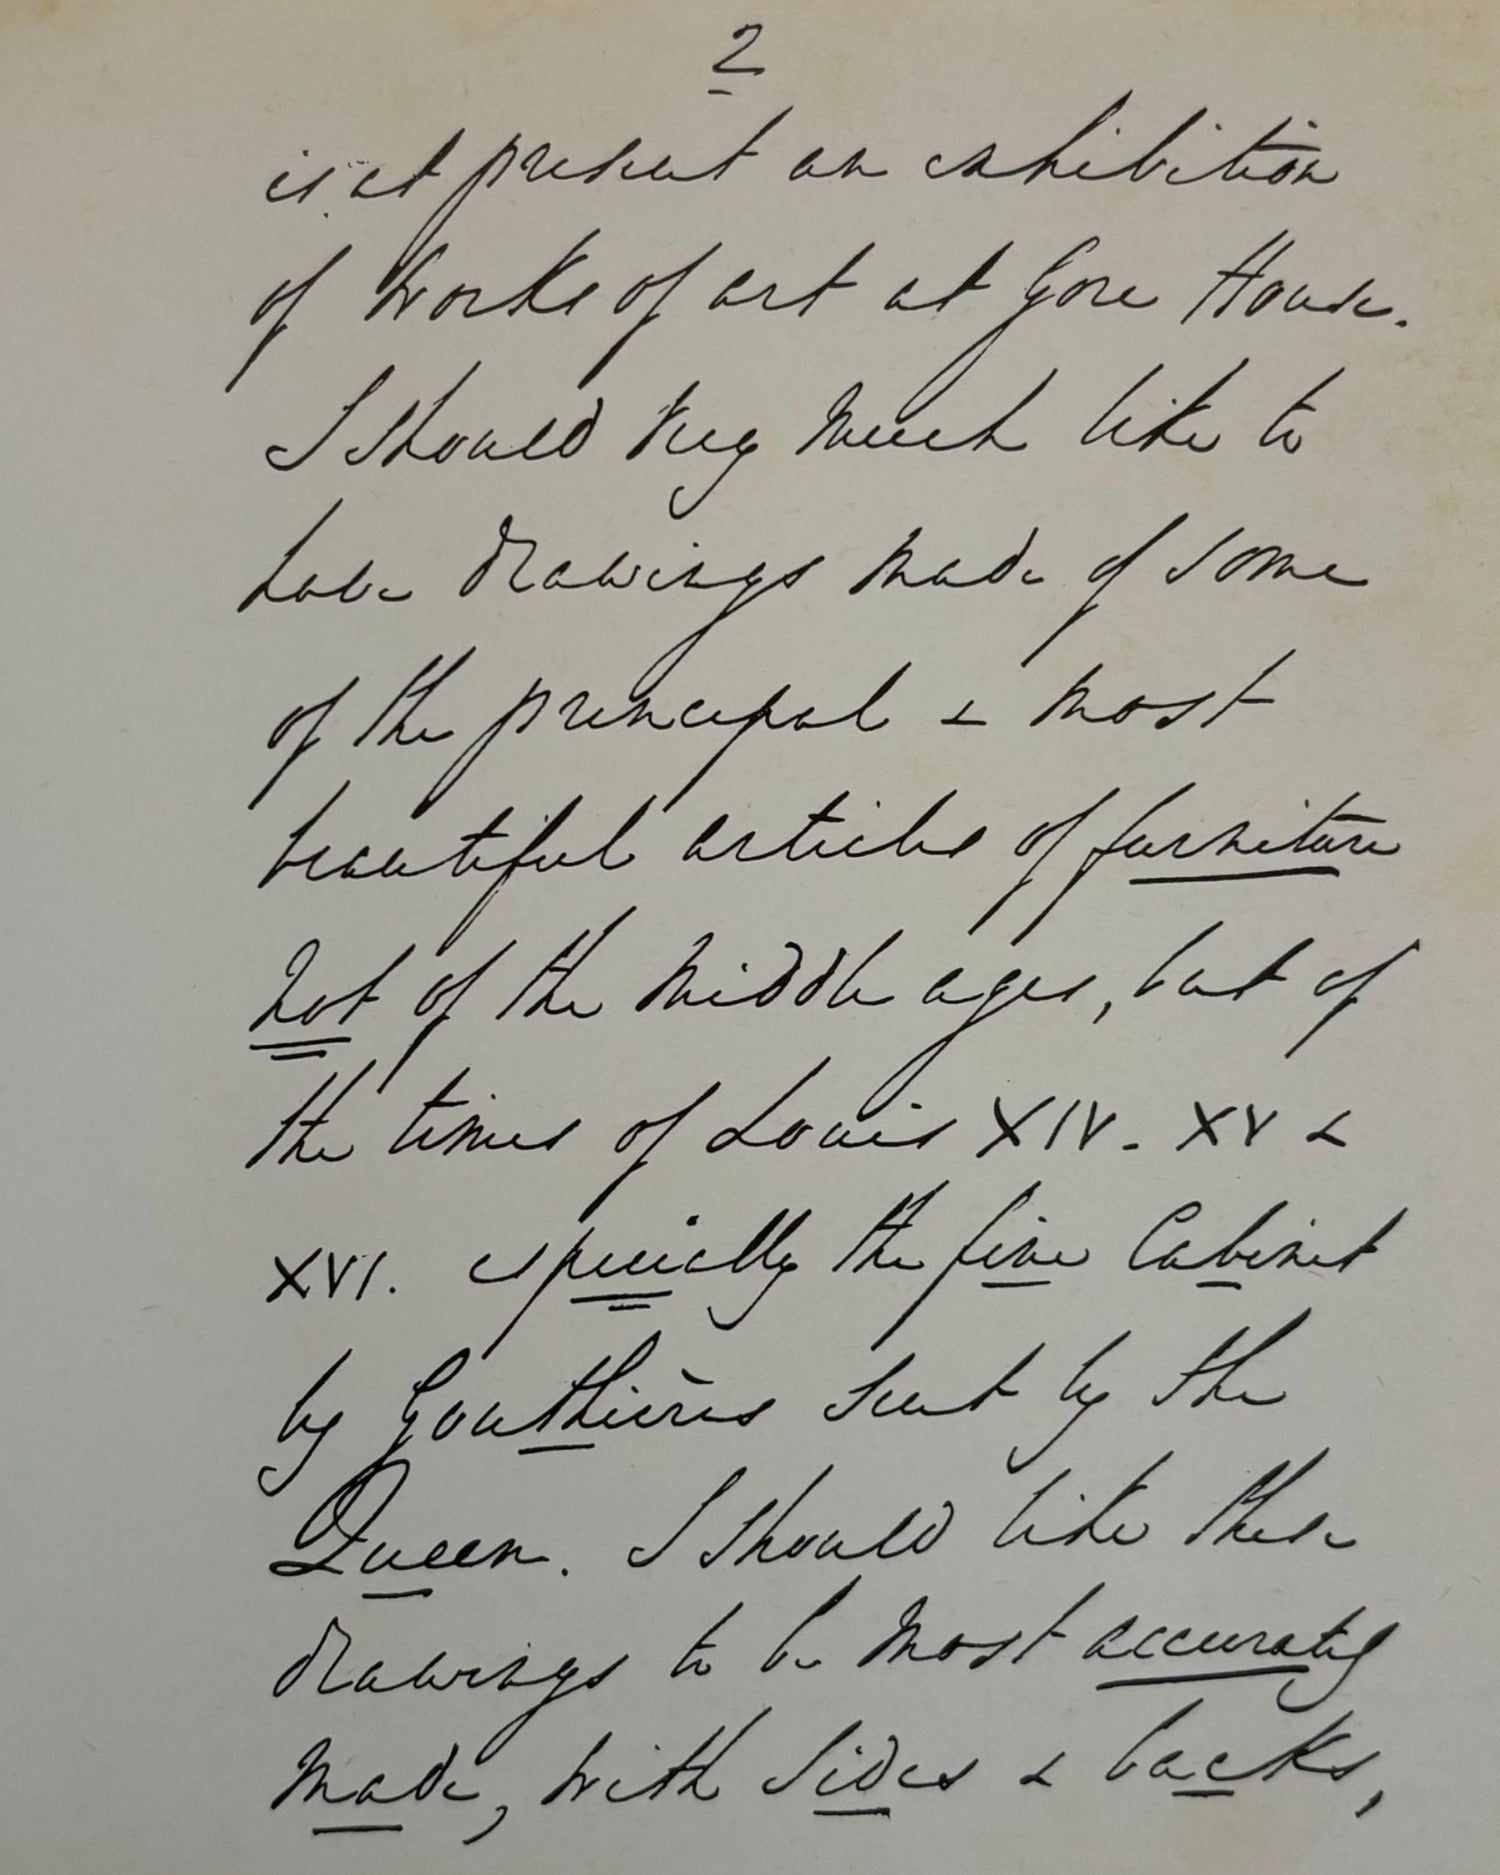 2
is at present an exhibition
of Works of art at Gore House.
I should very much like to
have drawings made of some
of the principal & most
beautiful articles of furniture
Not of the Middle ages, but of
the times of Louis XIV. XV &
XVI. especially the fine Cabinet
by Gouthières sent by the
Queen. I should like these
drawings to be most accurately
made, with sides & backs,